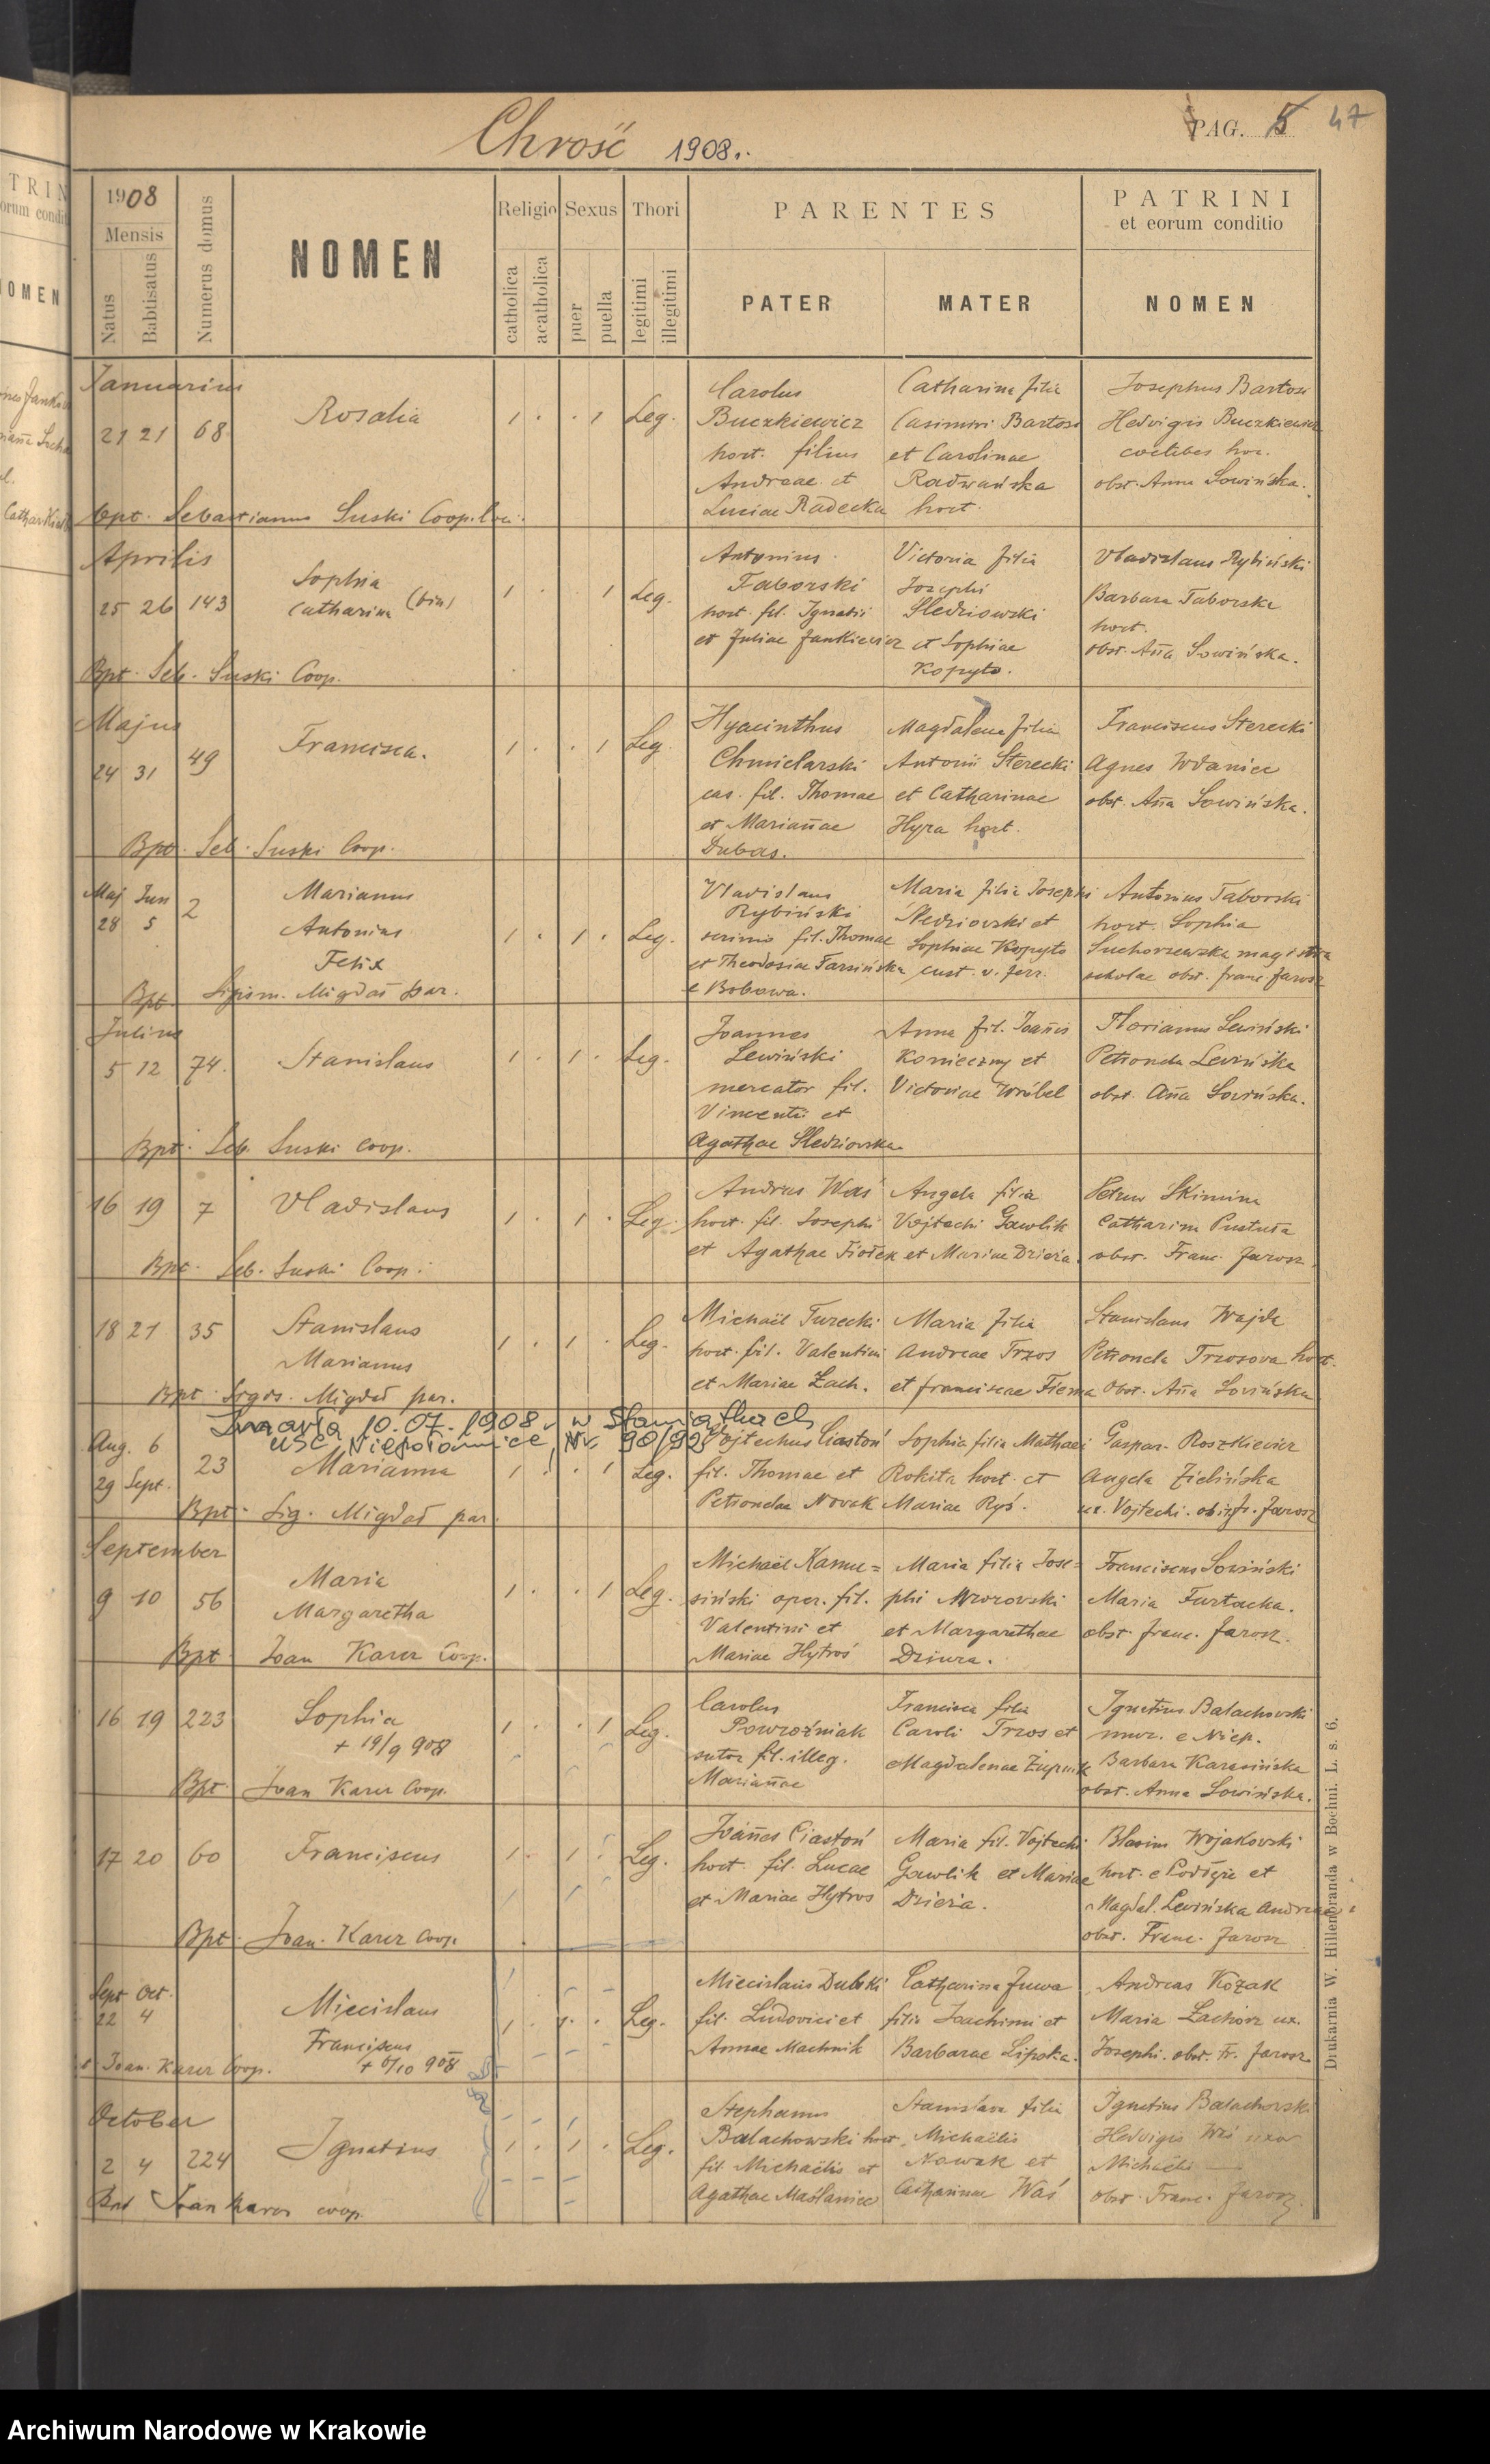 Chrość 1908.
PAG. 5 47
1908
Mensis
Natus
Babtisatus
Numerus domus
NOMEN
Religio
catholica
acatholica
Sexus
puer
puella
Thori
legitimi
illegitimi
PARENTES
PATER
MATER
PATRINI
et eorum conditio
NOMEN
Januarius
21 21 68
Rosalia
Leg.
Carolus
Buczkiewicz
hort. filius
Andreae et
Luciae Radecka
Catharina filia
Casimiri Bartosi
et Carolinae
Radwańska
hort.
Josephus Bartosi
Hedvigis Buczkiewicz
coelibes hor.
obst. Anna Sowińska.
Bpt. Sebastianus Suski Coop.
Aprilis
25 26 143
Sophia
Catharina (bin)
Leg.
Antonius
Taborski
hort. fil. Ignatii
et Juliae Jankiewicz
Victoria filia
Josephi
Śledziowski
et Sophiae
Kopyto.
Vladislaus Rybiński
Barbara Taborska
hort.
obst. Ana Sowińska.
Bpt. Seb. Suski Coop.
Majus
24 31 49
Francisca.
Leg.
Hyacinthus
Chmielarski
cas. fil. Thomae
et Marianae
Dubas.
Magdalena filia
Antonii Sterecki
et Catharinae
Hyra hort.
Franciscus Sterecki
Agnes Wdaniec
obst. Ana Sowińska.
Bpt. Seb. Suski Coop.
Maj Jun
28 5 2
Marianus
Antonius
Felix
Leg.
Vladislaus
Rybiński
fil. Thomae
et Theodosiae Tarsińska
e Bobowa.
Maria filia Josephi
Śledziovski et
Sophiae Kopyto
cust. v. ferr.
Antonius Taborski
hort. Sophia
Suchorzewska magistra
scholae obst. franc. Jarosz
Bpt. Sigism. Migdał par.
Julius
5 12 74.
Stanislaus
Leg.
Joannes
Lewiński
mercator fil.
Vincentii et
Agathae Śledziovska
Anna fil. Joanis
Konieczny et
Victoriae Wróbel
Florianus Lewiński
Petronela Levińska
obst. Ana Sovińska.
Bpt. Seb. Suski Coop.
16 19 7
Vladislaus
Leg.
Andreas Waś
hort. fil. Josephi
et Agathae Fiołek
Angela filia
Vojtechi Gawlik
et Mariae Dzieża.
Petrus Skimina
Catharina Pustuła
obst. Franc. Jarosz
Bpt. Seb. Suski Coop.
18 21 35
Stanislaus
Marianus
Leg.
Michaël Turecki
hort. fil. Valentini
et Mariae Lach.
Maria filia
Andreae Trzos
et franciscae Fiema
Stanislaus Wajda
Petronela Trzosova hort.
Obst. Ana Sovińska
Bpt. Sigis. Migdał par.
Zmarła 10.07.1908 w Staniątkach
USC Niepołomice, Nr. 90/92
Aug. 6
29 Sept.
23
Marianna
Leg.
Vojtechus Ciastoń
fil. Thomae et
Petronelae Novak
Sophia filia Mathaei
Rokita hort. et
Mariae Ryś.
Gaspar Roszkiewicz
Angela Zielińska
ux. Vojtechi. obst. fr. Jarosz
Bpt. Sig. Migdał par.
September
9 10 56
Maria
Margaretha
Leg.
Michaël Kamu=
siński oper. fil.
Valentini et
Mariae Hytroś
Maria filia Jose=
phi Mrozovski
et Margarethae
Dziura.
Franciscus Sowiński
Maria Furtacka.
obst. franc. Jarosz.
Bpt Joan Karcz Coop.
16 19 223
Sophia
+ 19/9 908
Leg.
Carolus
Powroźniak
sutor fil. illeg.
Marianae
Francisca filia
Caroli Trzos et
Magdalenae Żupnik
Ignatius Balachovski
mur. e Niep.
Barbara Karasińska
obst. Anna Sowińska.
Bpt. Joan Karcz Coop.
17 20 60
Franciscus
Leg.
Joanes Ciastoń
hort. fil. Lucae
et Mariae Hytros
Maria fil. Vojtechi
Gawlik et Mariae
Dzieża.
Blasius Wojakovski
hort. e Podłęże et
Magdal. Levińska
obst. Franc. Jarosz
Bpt. Joan. Karcz Coop.
Sept Oct.
22 4
Miecislaus
Franciscus
+ 6/10 908
Leg.
Miecislaus Dubski
fil. Ludovici et
Annae Machnik
Catharina Juwa
filia Joachimi et
Barbarae Lipska.
Andreas Kozak
Maria Lachorz ux.
Josephi. obst. Fr. Jarosz
Joan. Karcz Coop.
October
2 4 224
Ignatius
Leg.
Stephanus
Balachowski hort.
fil. Michaëlis et
Agathae Maślaniec
Stanislava filia
Michaëlis
Nowak et
Catharinae Waś
Ignatius Balachovski
Hedvigis Waś uxor
Michaëlis
obst. Franc. Jarosz.
Bpt Joan Karcz coop.
Drukarnia W. Hillenbranda w Bochni. L. s. 6.
Archiwum Narodowe w Krakowie